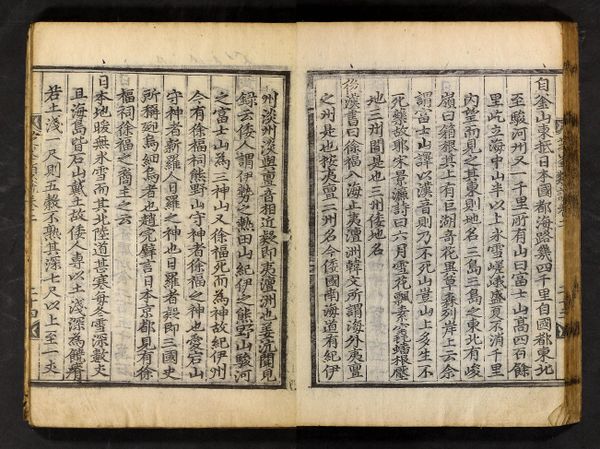 自釜山東抵日本國都海路幾四千里自國都東北
至駿河州又一千里所有山曰富士山高四百餘
里屹立海中山半以上氷雪嵯峨盛夏不消千里
內望而見之其東則地名三島三島之東北有峻
嶺曰箱根其上有巨湖奇花異草森列岸上云余
謂富士山譯以漢音則乃不死山豈山上多生不
死藥故耶宋景濂詩曰六月雪花飄素毳蟠根壓
地三州間是也三州倭地名
後漢書曰徐福入海止夷澶洲韓文所謂海外夷亶
之州是也按夷澶二州名今倭國南海道有紀伊
州淡州淡與亶音相近疑即夷澶洲也姜沆聞見
錄云倭人謂伊勢之熱田山紀伊之熊野山駿河
之富士山為三神山又徐福死而為神故紀伊州
今有徐福祠熊野山守神者徐福之神也愛宕山
守神者新羅人日羅之神也日羅者疑即三國史
所稱延烏細烏者也趙完璧言日本京都見有徐
福祠徐福之裔主之云
日本地暖無氷雪而其北陸道甚寒每冬雪深數丈
且海島皆石山戴土故倭人專以土淺深為饒瘠
若土淺一尺則五穀不熟其深七尺以上至一丈